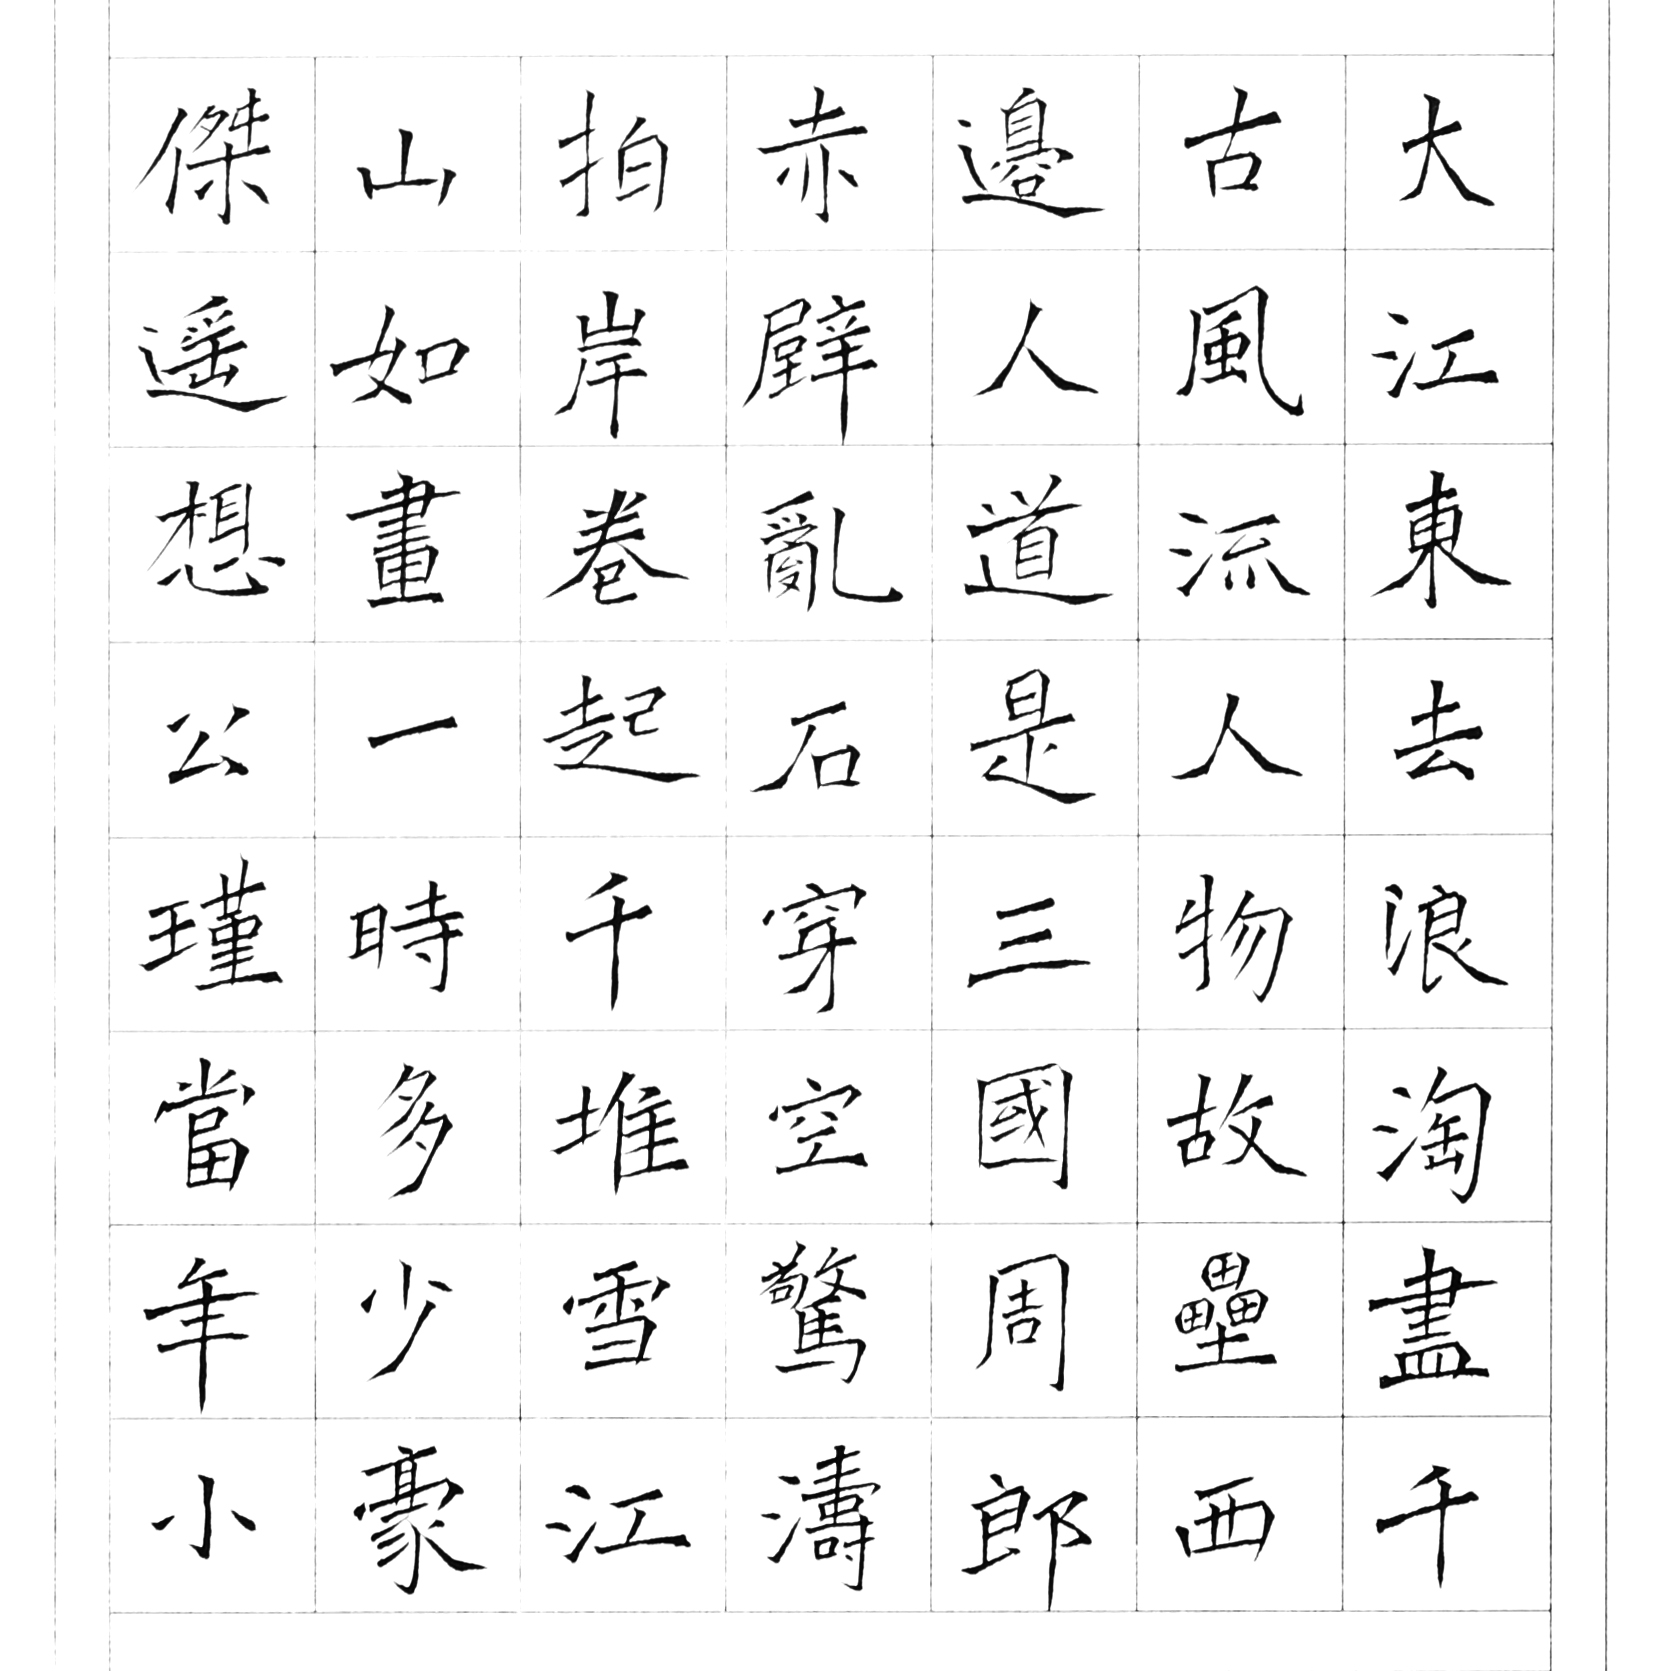 大江東去浪淘盡千
古風流人物故壘西
邊人道是三國周郎
赤壁亂石穿空驚濤
拍岸卷起千堆雪江
山如畫一時多少豪
傑遥想公瑾當年小